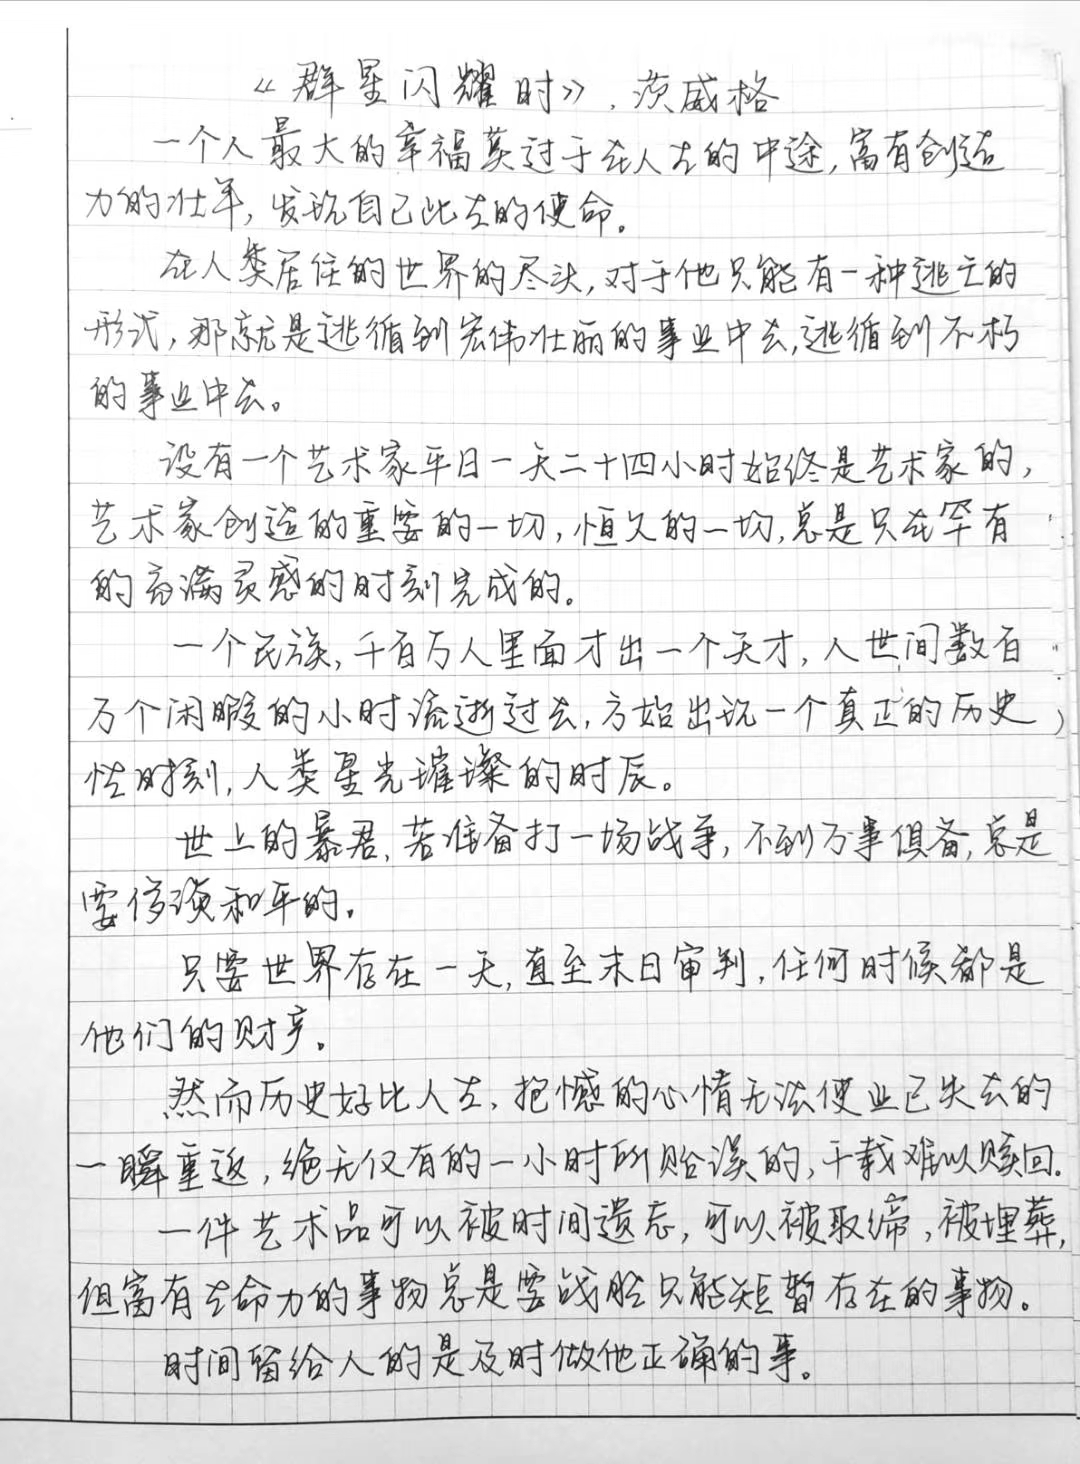 《群星闪耀时》.茨威格
一个人最大的幸福莫过于在人生的中途,富有创造
力的壮年,发现自己此生的使命。
在人类居住的世界的尽头,对于他只能有一种逃亡的
形式,那就是逃循到宏伟壮丽的事业中去,逃循到不朽
的事业中去。
没有一个艺术家平日一天二十四小时始终是艺术家的,
艺术家创造的重要的一切,恒久的一切,总是只在罕有
的充满灵感的时刻完成的。
一个民族,千百万人里面才出一个天才,人世间数百
万个闲暇的小时流逝过去,方始出现一个真正的历史
性时刻,人类星光璀璨的时辰。
世上的暴君,若准备打一场战争,不到万事俱备,总是
要侈谈和平的.
只要世界存在一天,直至末日审判,任何时候都是
他们的财产。
然而历史好比人生,抱憾的心情无法使业已失去的
一瞬重返,绝无仅有的一小时所贻误的,千载难以赎回.
一件艺术品可以被时间遗忘,可以被取缔,被埋葬,
但富有生命力的事物总是要战胜只能短暂存在的事物。
时间留给人的是及时做他正确的事。